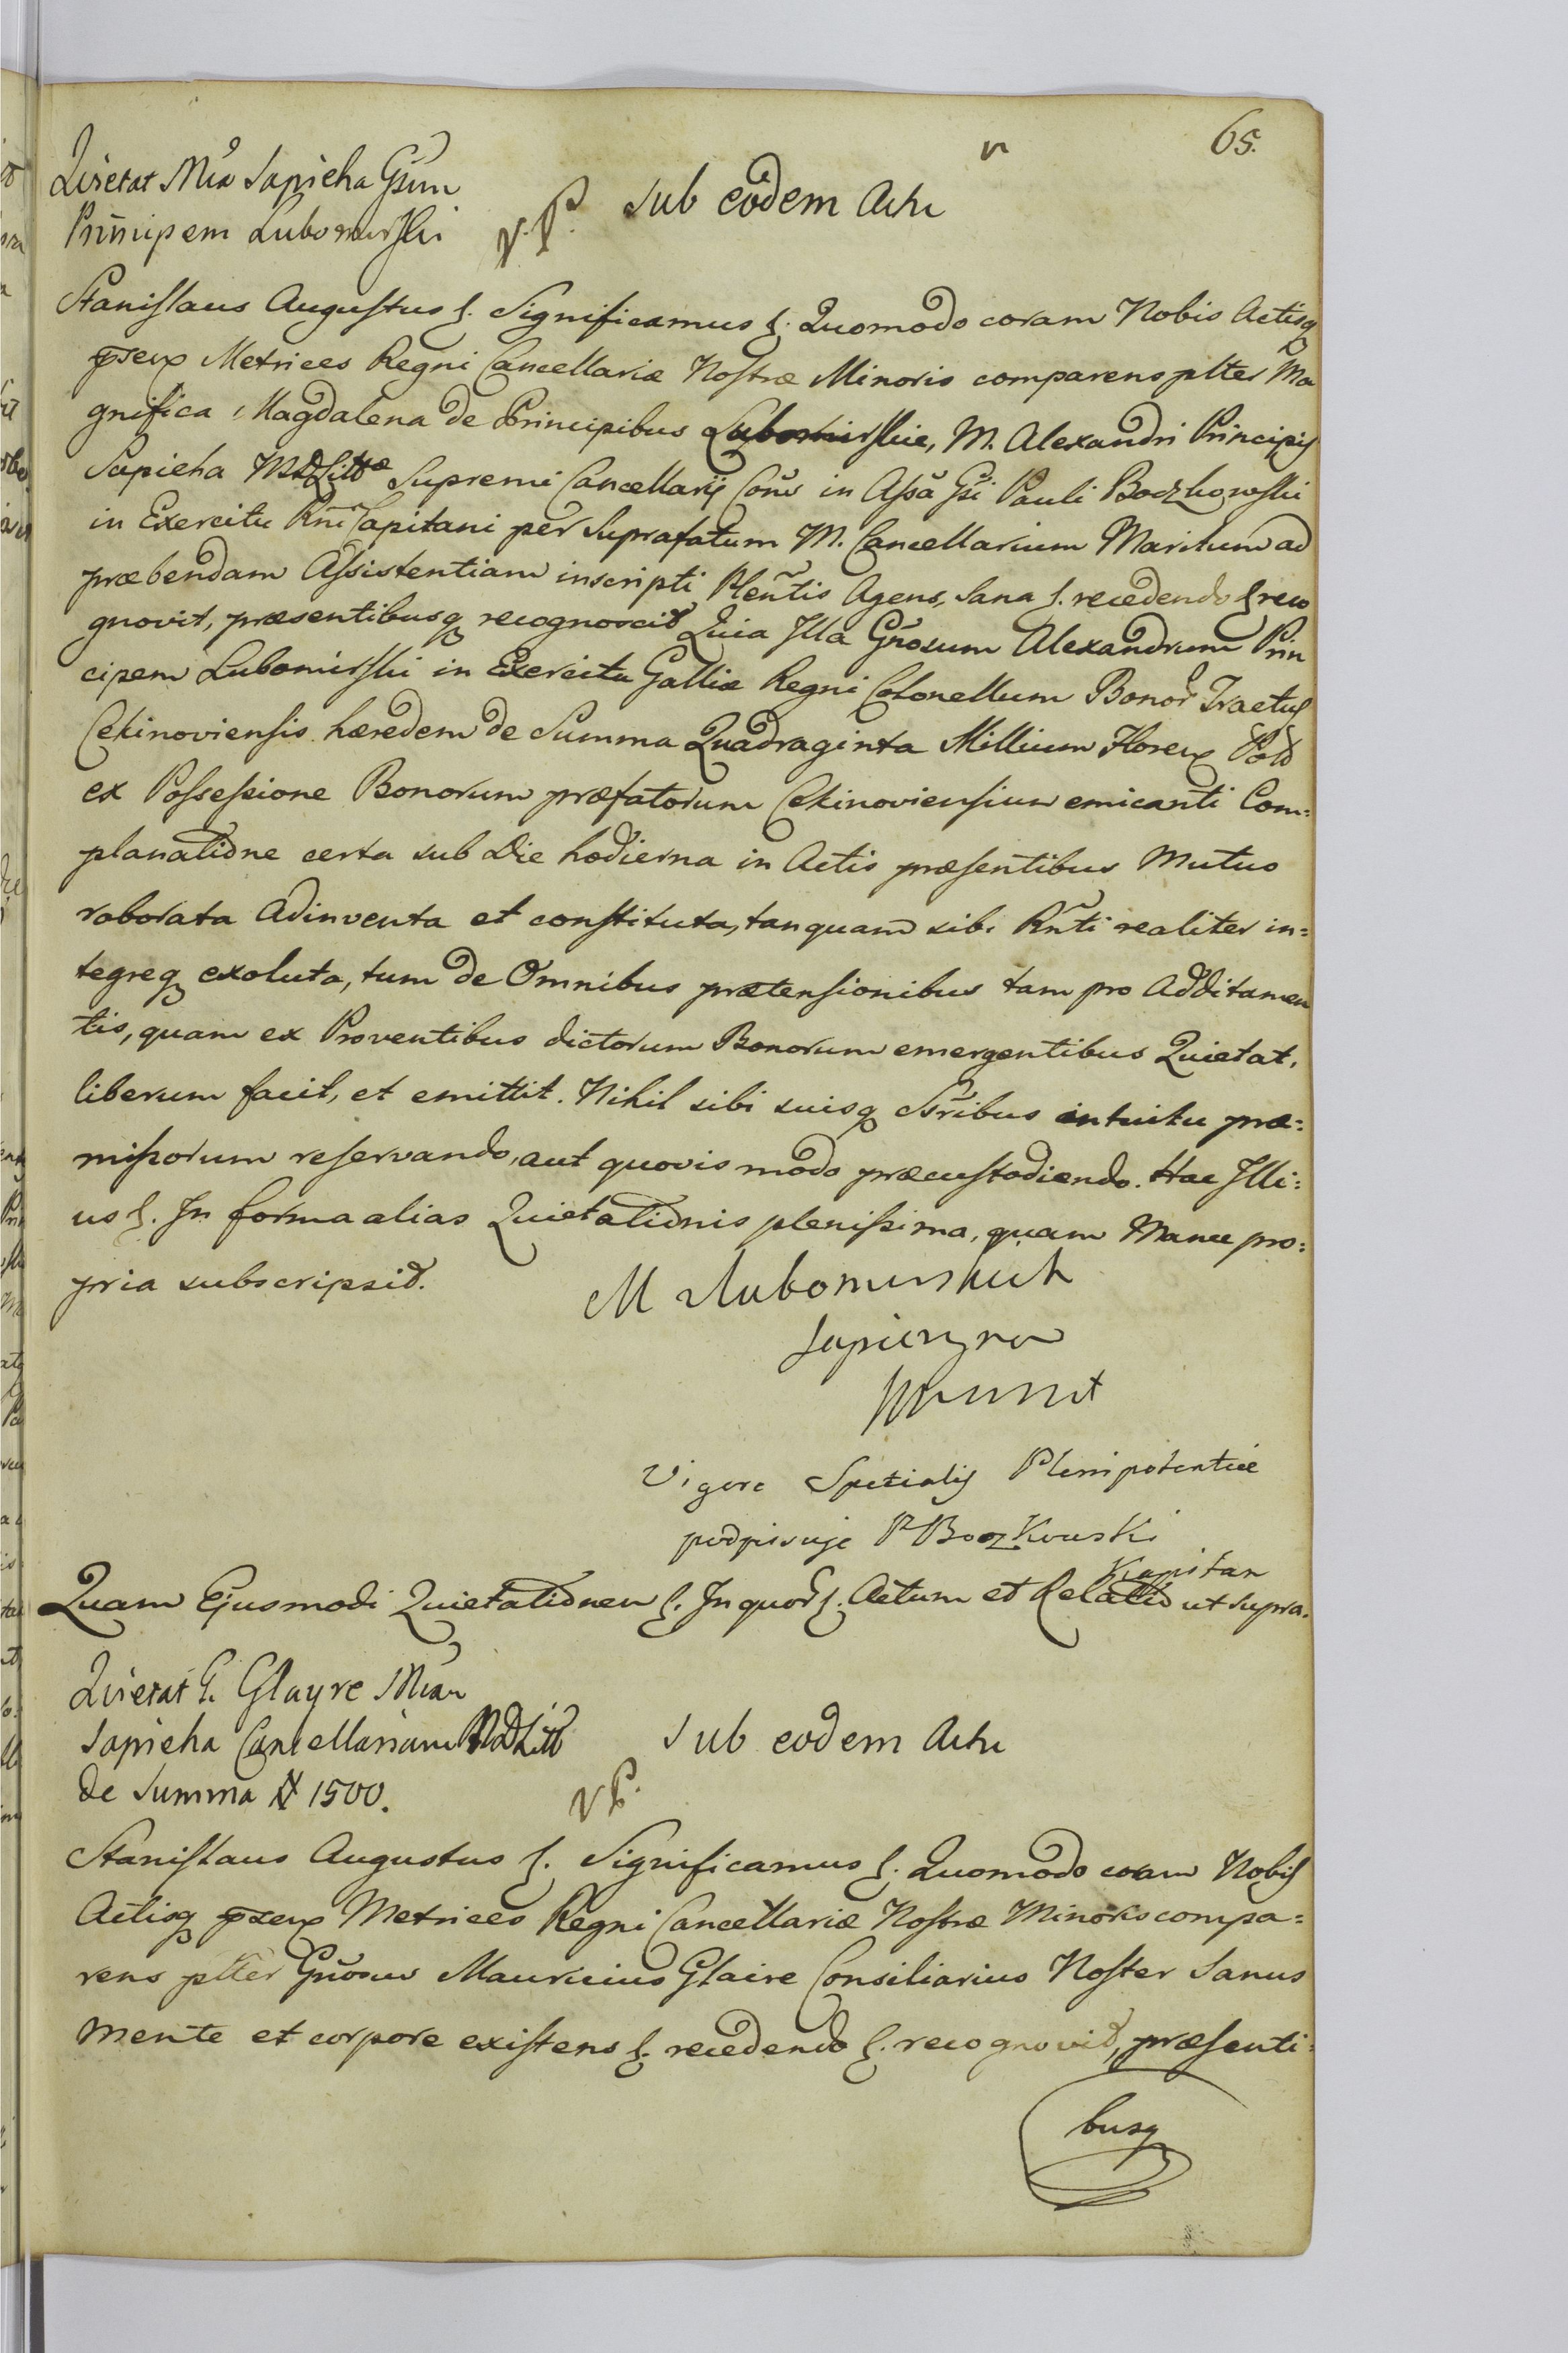 65.
Quietat Mca Sapieha Gsum
Principem Lubomirski
Sub eodem Actu
V. P.
Stanislaus Augustus &. Significamus &. Quomodo coram Nobis Actisq
pseux Metrices Regni Cancellariæ Nostræ Minoris comparens pltter Ma
gnifica Magdalena de Principibus Lubomirskie, M. Alexandri Principis
Sapieha M D Litt Supremi Cancellarij Cons in Assa Gsi Pauli Boczkowski
in Exercitu Rni Capitani per Suprafatum M. Cancellarium Maritum ad
præbendam Assistentiam inscripti Plentis Agens, Sana &. recedendo &. reco
gnovit, præsentibusq recognoscit Quia Illa Gnosum Alexandrum Prin
cipem Lubomirski in Exercitu Galliæ Regni Colonellum Bonor Tractus
Cekinoviensis hæredem de Summa Quadraginta Millium Floreux Pol
ex Possessione Bonorum præfatorum Cekinoviensium emicanti Com=
planatione certa sub Die hodierna in Actis præsentibus Mutuo
roborata Adinventa et constituta, tanquam sibi Rnti realiter in=
tegreq exoluta, tum de Omnibus prætensionibus tam pro Additamen
tis, quam ex Proventibus dictorum Bonorum emergentibus Quietat,
liberum facit, et emittit. Nihil sibi suisq Ssribus intuitu præ=
missorum reservando, aut quovis modo præcustodiendo. Hac Illi=
us &. In forma alias Quietationis plenissima, quam Manu pro=
pria subscripsit.
M Lubomirskich
Sapieżyna
Vigore Specialis Plenipotentiæ
podpisuje P Boczkowski
Kapitan
Quam Ejusmodi Quietationem &. In quor &. Actum et Relatio ut supra.
Quietat G. Glayre Mcum
Sapieha Cancellarium M D Litt
de Summa # 1500.
Sub eodem Actu
V P.
Stanislaus Augustus &. Significamus &. Quomodo coram Nobis
Actisq pseux Metrices Regni Cancellariæ Nostræ Minoris compa=
rens pltter Gnosus Mauricius Glaire Consiliarius Noster Sanus
Mente et corpore existens &. recedendo &. recognovit, præsenti=
busq